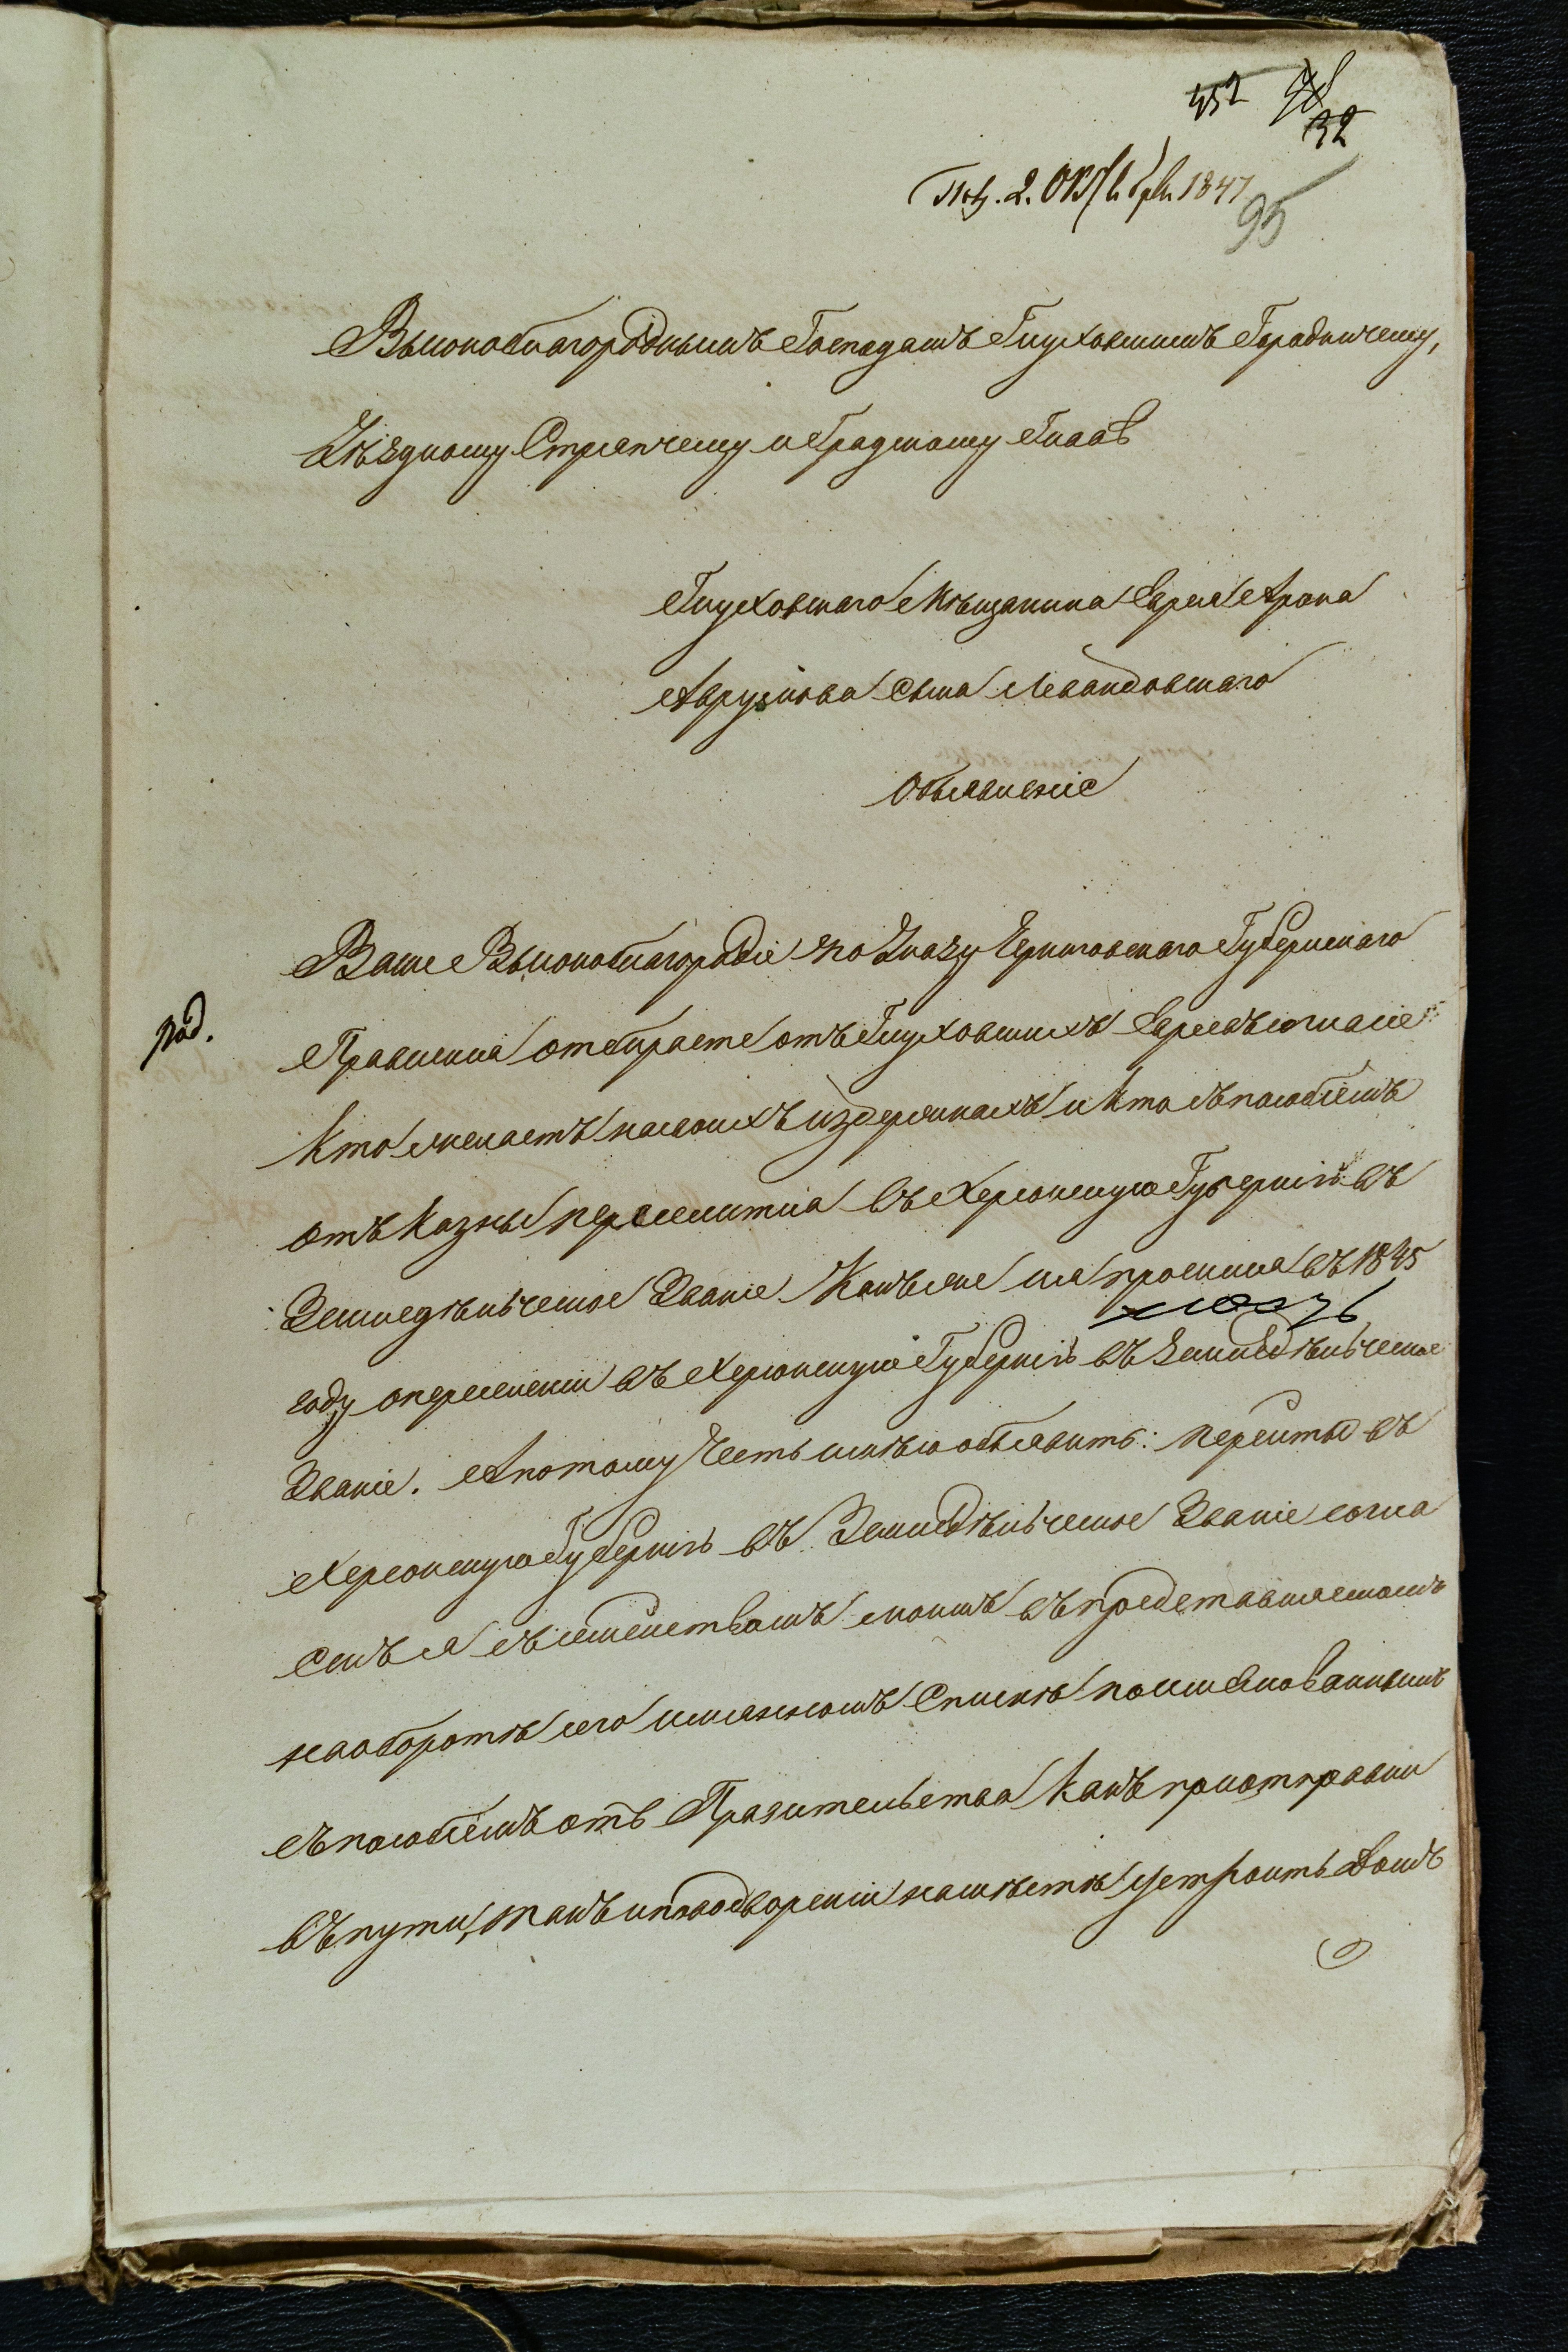 452
32
Пол. 2. Октября 1847
95
Высокоблагороднымъ Господамъ Глуховскимъ Городничему,
Уѣздному Стряпчему и Градскому Главѣ
Глуховскаго Мѣщанина Еврея Арона
Аврумова сына Левандовскаго
Объявленіе
Ваше Высокоблагородіе по Указу Черниговскаго Губернскаго
Правленія отбираете отъ Глуховскихъ Евреевъ согласіе
кто желаетъ на своихъ издержкахъ и кто съ пособіемъ
отъ казны переселится въ Херсонскую Губернію въ
Земледѣльческое Званіе Какъ же и я просился въ 1845
году о переселеніи въ Херсонскую Губернію въ Земледѣльческое
Званіе. А потому Честь имѣю объявить: перейты въ
Херсонскую Губернію въ Земледѣльческое Званіе согла
сенъ я съ семействомъ моимъ въ представляемомъ
на оборотѣ сего имянномъ Спискѣ поименованнымъ
съ пособіемъ отъ Правительства какъ при отправки
въ пути, такъ и по водвореніи на мѣстѣ устроить домъ